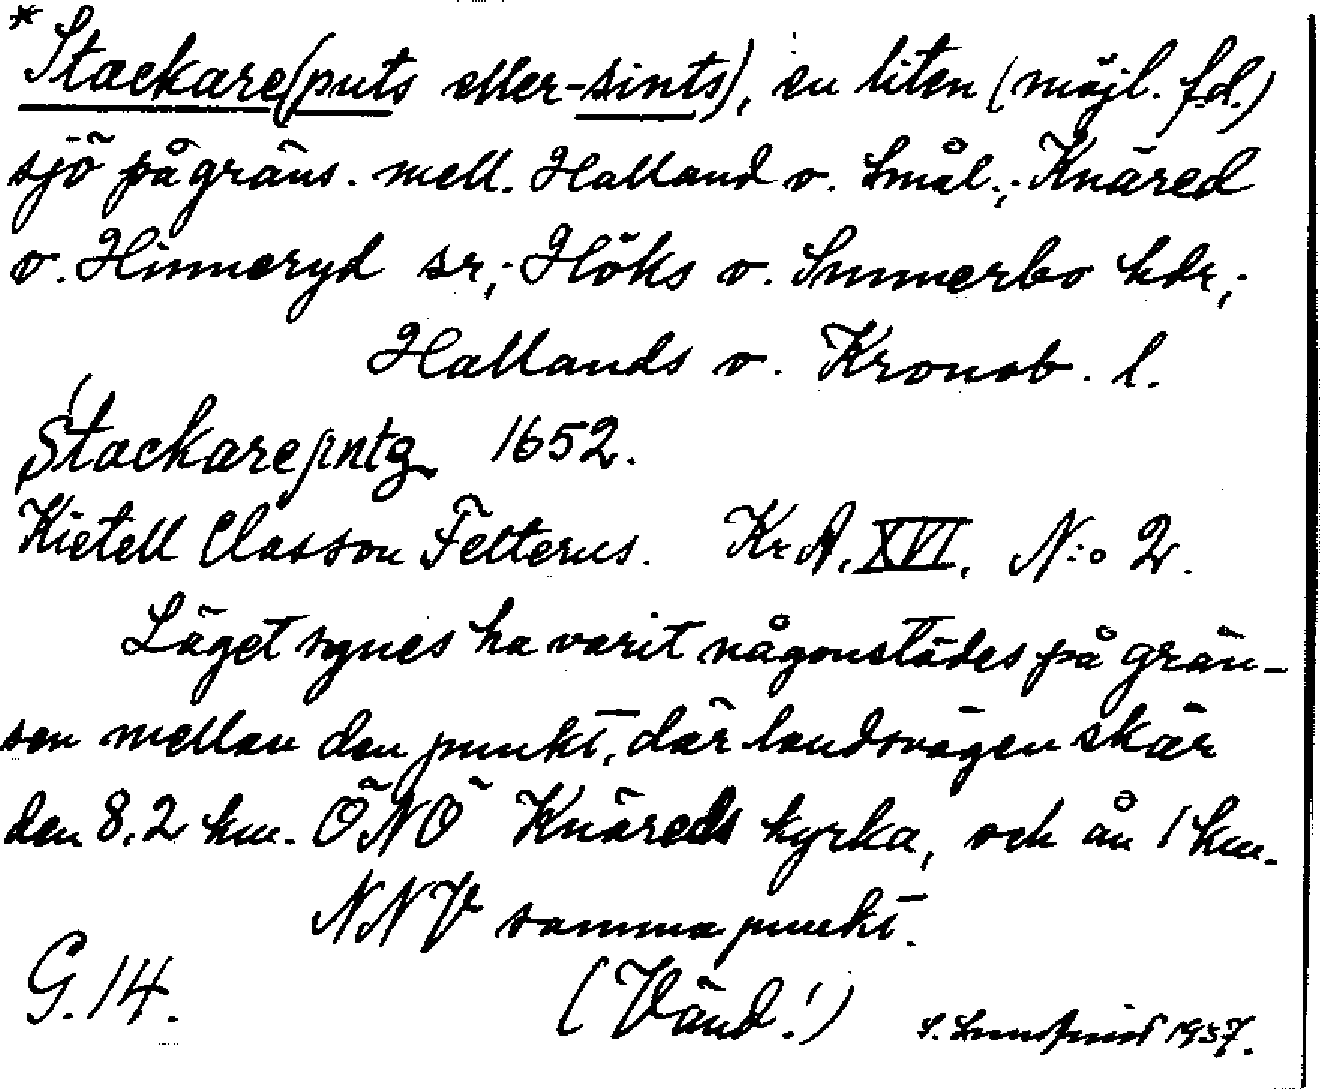 *
Stackare(puts eller -sints), en liten (möjl. f.d.)
sjö på gräns. mell. Halland o. Smål.; Knäred
o. Hinneryd sr.; Höks o. Sunnerbo hdr.;
Hallands o. Kronob. l.
Stackareputz 1652.
Kietell Classon Felterus. Kr A. XVI. N:o 2.
Läget synes ha varit någonstädes på grän-
sen mellan den punkt, där landsvägen skär
den 8,2 km. ÖNÖ Knäreds kyrka, och ån 1 km.
NNV samma punkt.
G. 14.
(Vänd!)
1937.